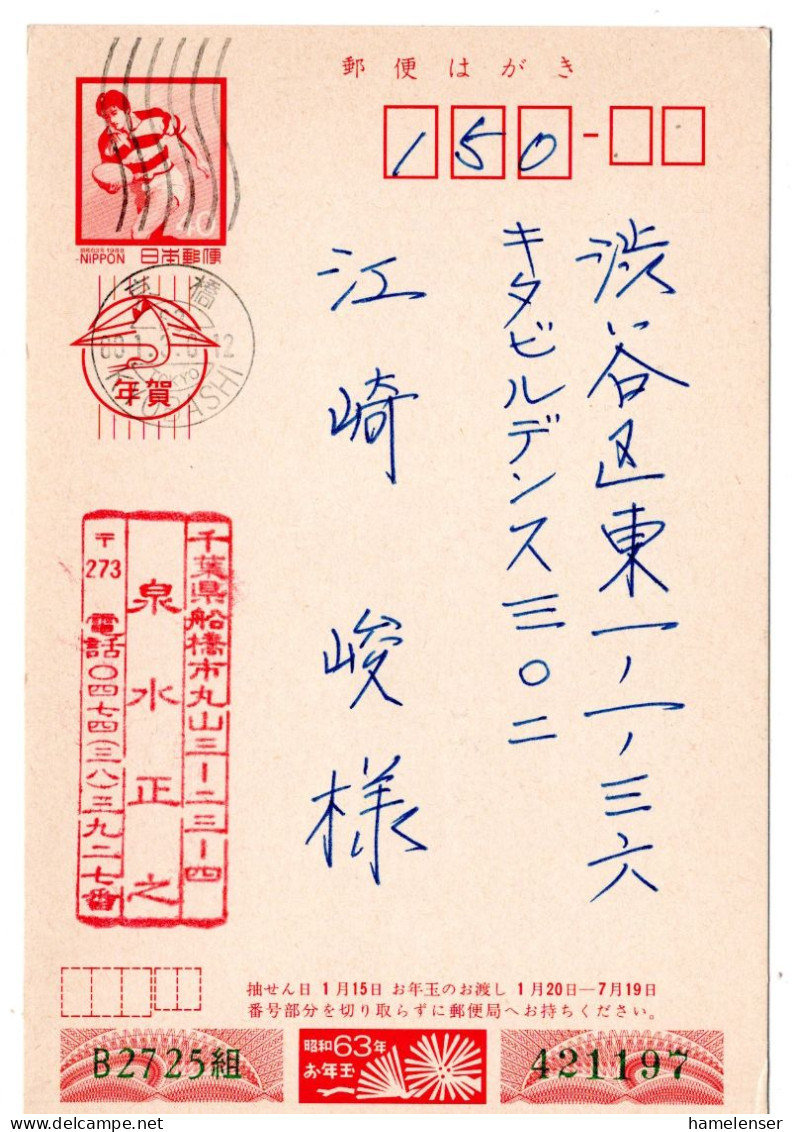 郵便はがき
150
40
昭和63年 1988
NIPPON 日本郵便
京橋
TOKYO
KYOBASHI
年賀
渋谷区東一ノ一ノ三六
キタビルデンス三〇二
江崎 峻 様
千葉県船橋市丸山三ー二三ー四
泉水正之
〒273 電話〇四七四(三八)三九二七番
抽せん日 1月15日 お年玉のお渡し 1月20日―7月19日
番号部分を切り取らずに郵便局へお持ちください。
B2725組
昭和63年
お年玉
421197
hamelenser